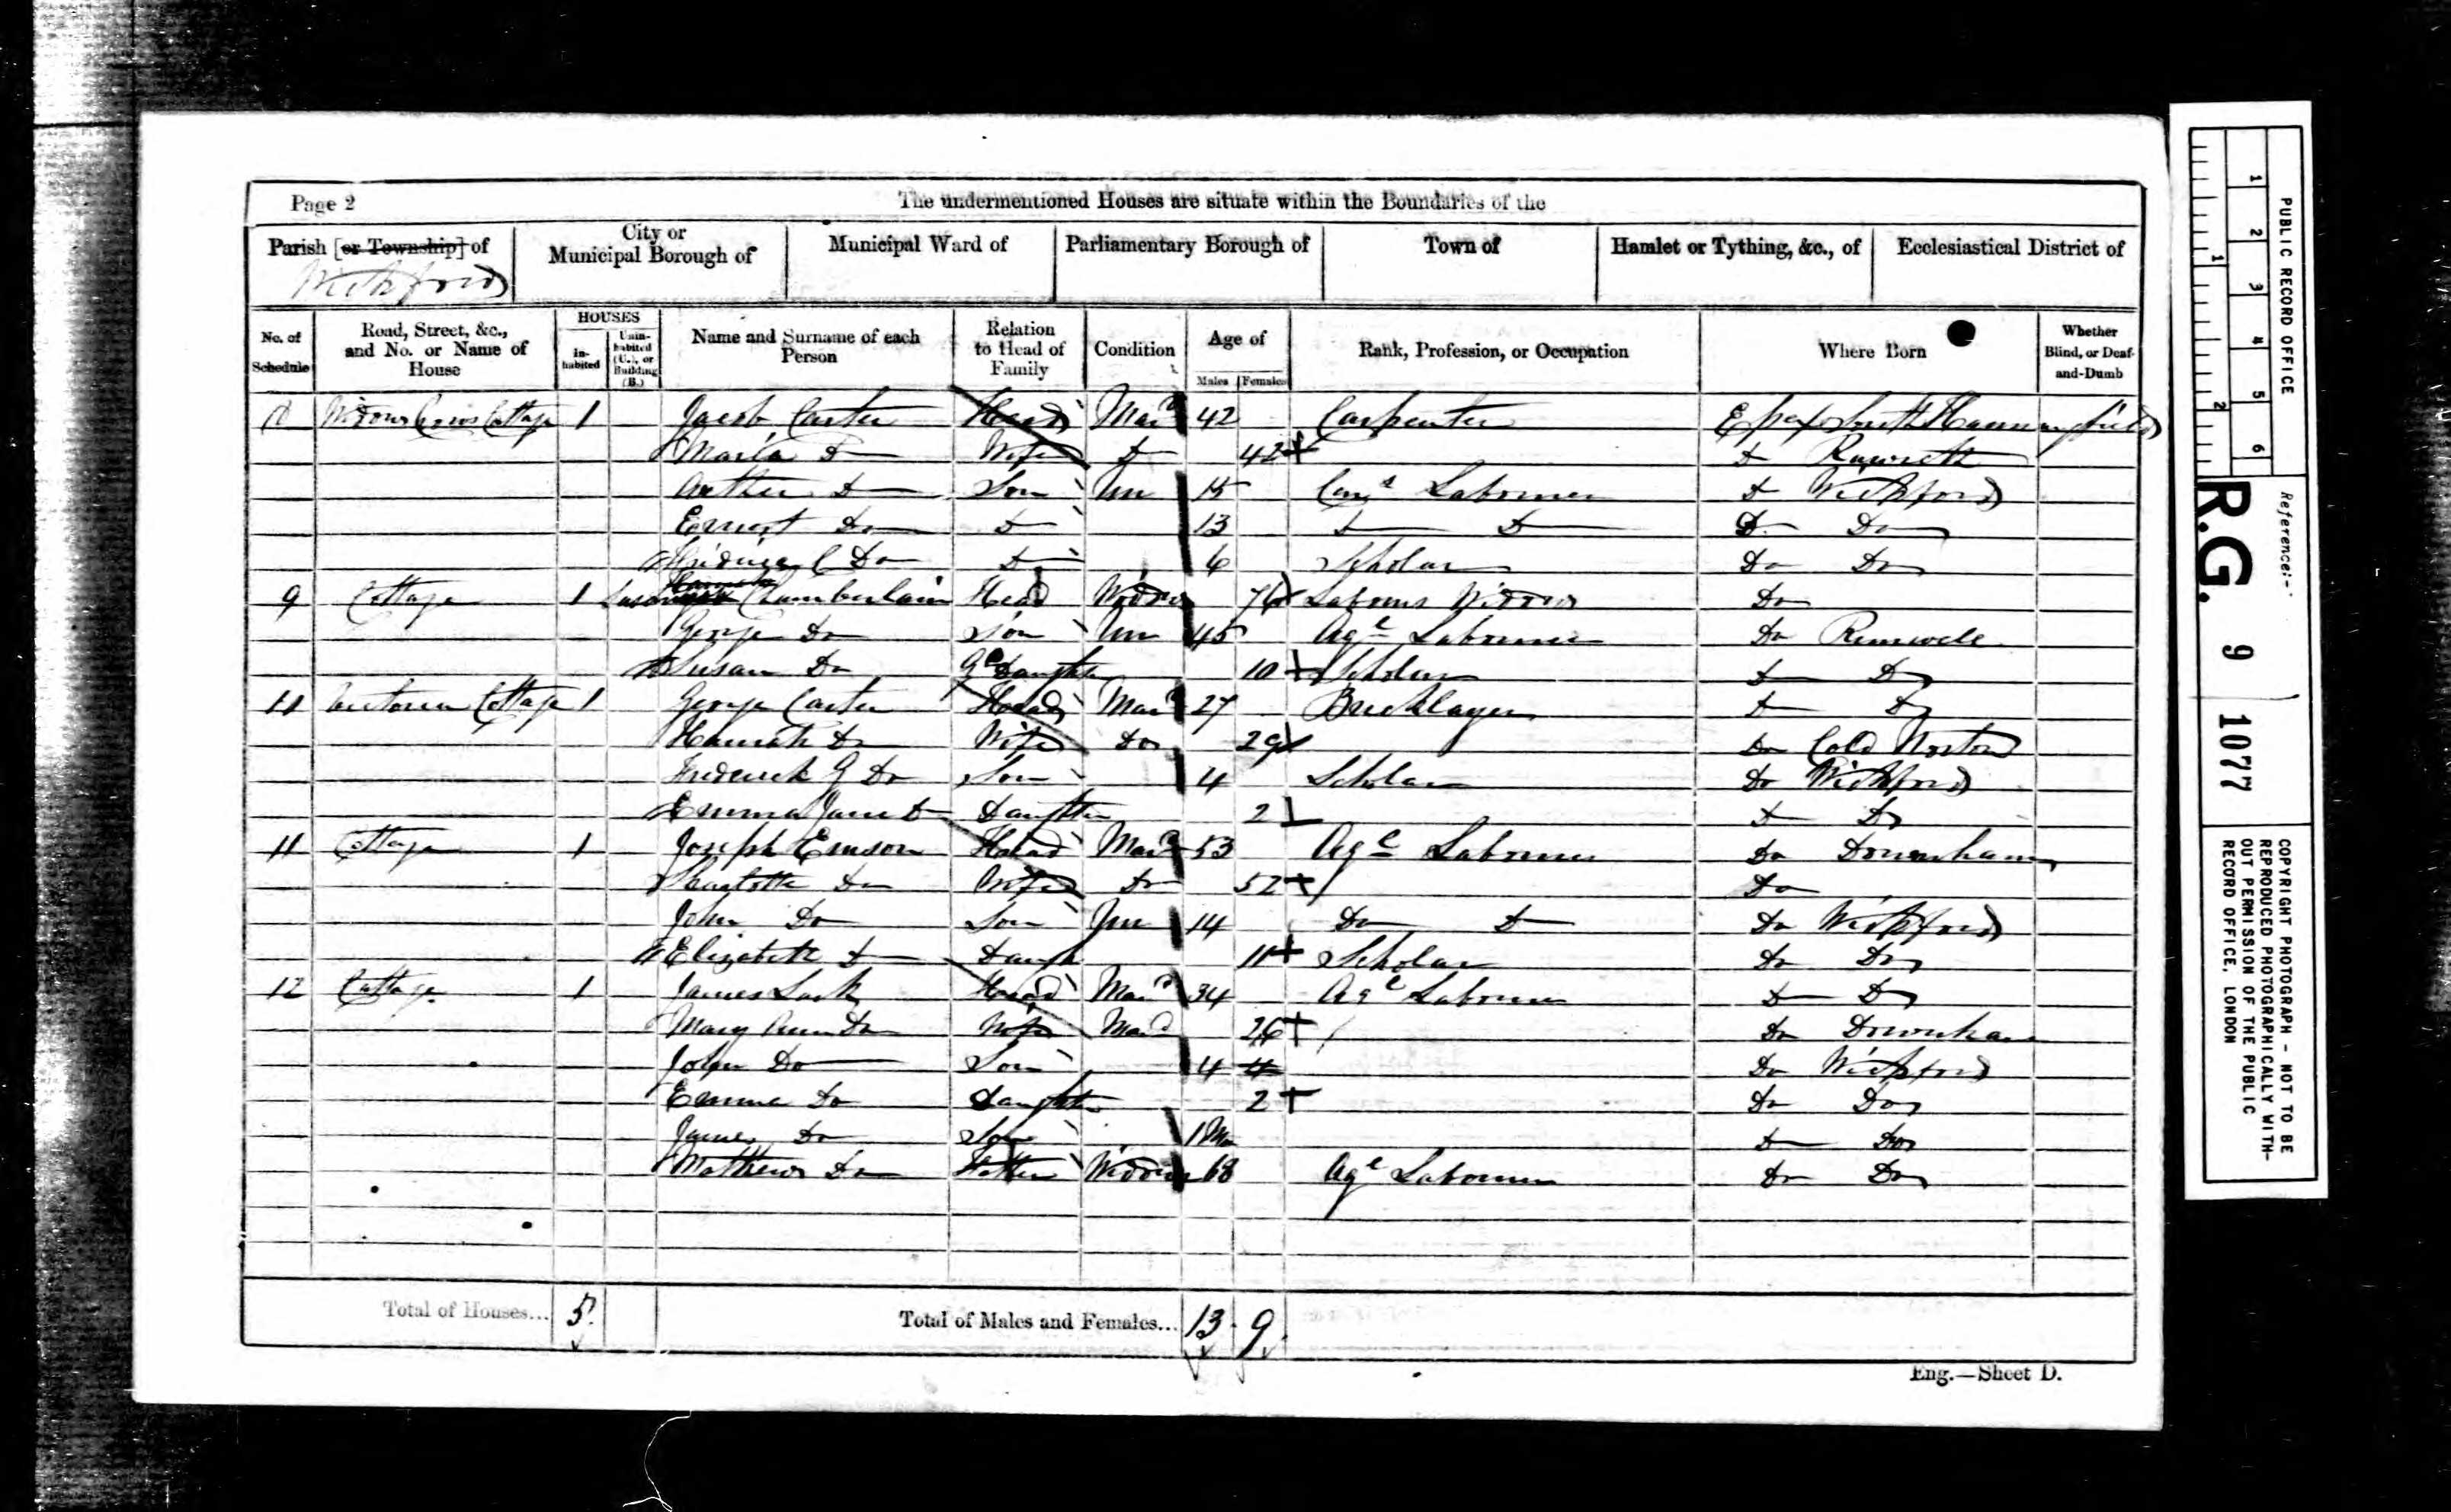 Page 2 The undermentioned Houses are situate within the Boundaries of the
Parish [or Township] of City or Municipal Borough of Municipal Ward of Parliamentary Borough of Town of Hamlet or Tything, &c., of Ecclesiastical District of
Wickford
No. of Schedule Road, Street, &c., and No. or Name of House HOUSES Inhabited Uninhabited (U.), or Building (B.) Name and Surname of each Person Relation to Head of Family Condition Age of Males Females Rank, Profession, or Occupation Where Born Whether Blind, or Deaf-and-Dumb
8 Cottage 1 Jacob Carter Head Mard 42 Carpenter Essex South Hanningfield
Maria Do Wife Do 42 Do Rawreth
Arther Do Son Un 15 Labourer Do Wickford
Ernest Do Do 13 Do Do Do Do
C Do Do 6 Scholar Do Do
9 Cottage 1 Chamberlain Head Widow 76 Labours Widow Do
George Do Son Un 45 Agl Labourer Do Runwell
Susan Do Gd Daughter 10 Scholar Do Do
10 Cottage 1 George Carter Head Mard 27 Bricklayer Do Do
Hannah Do Wife Do 29 Do Cold Norton
Frederick G Do Son 4 Scholar Do Wickford
Emma Jane Do Daughter 2 Do Do
11 Cottage 1 Joseph Emson Head Mard 53 Agl Labourer Do Downham
Charlotte Do Wife Do 52 Do
John Do Son Un 14 Do Do Do Wickford
Elizabeth Do Daugh 11 Scholar Do Do
12 Cottage 1 James Lark Head Mard 34 Agl Labourer Do Do
Mary Ann Do Wife Mard 26 Do Downham
Do Son 4 4 Do Wickford
Emma Do Daughter 2 Do Do
James Do Son 1 Mo Do Do
Mathew Do Father Widower 68 Agl Labourer Do Do
Total of Houses... 5 Total of Males and Females... 13 9
Eng.—Sheet D.
PUBLIC RECORD OFFICE
1 2 3 4 5 6
1 2
Reference:-
R.G. 9 1077
COPYRIGHT PHOTOGRAPH - NOT TO BE
REPRODUCED PHOTOGRAPHICALLY WITH-
OUT PERMISSION OF THE PUBLIC
RECORD OFFICE, LONDON